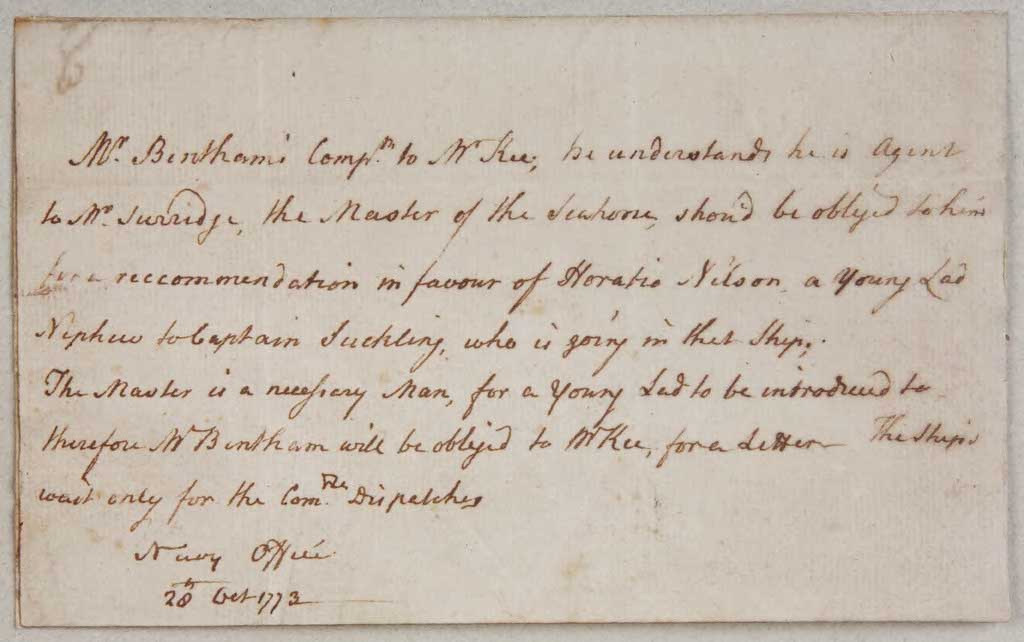 Mr. Bentham's Compts. to Mr Kee, he understands he is Agent
to Mr. Surridge, the Master of the Seahorse, shou'd be oblyed to him
for a reccommendation in favour of Horatio Nelson a Young Lad
Nephew to Captain Suckling, who is going in that Ship,
The Master is a necessary Man, for a Young Lad to be introduced to
therefore Mr Bentham will be obliged to Mr Kee, for a Letter The Ships
wait only for the Dispatches
Navy Office
28th Oct 1773